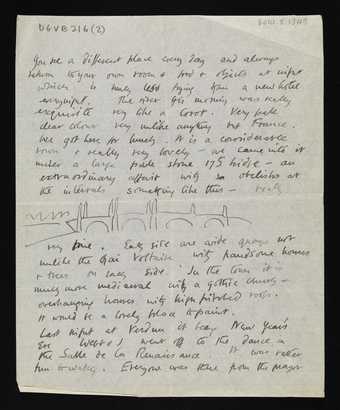 DGVB 216 (2)
You see a different place every day and always
return to your own room & food & objects at night
which is much less trying than a new hotel
every night. The river this morning was really
exquisite very like a Corot. Very pale
clear colour very unlike anything but France.
We got here for lunch. It is a considerable
town & really very lovely – we came into it
under a large pale stone 17C bridge – an
extraordinary affair with obelisks at
the intervals something like this – really
very fine. Each side are wide quays not
unlike the Quai Voltaire with handsome houses
& trees on each side. In the town it is
much more mediaeval with a gothic church –
overhanging houses with high pitched roofs.
It would be a lovely place to paint.
Last night at Verdun it being New Year's
Eve West & I went to the dance in
the Salle de la Renaissance. It was rather
fun to watch. Everyone was there from the mayor